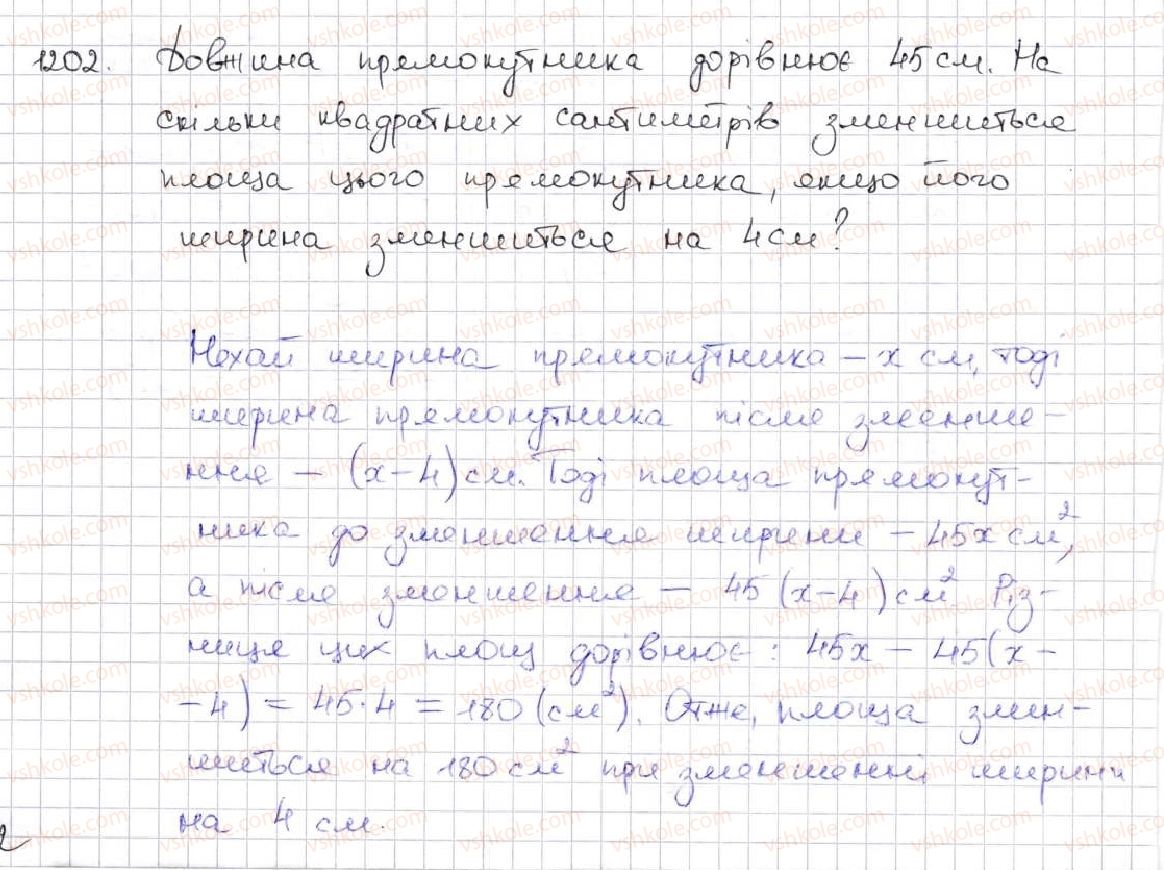 1202. Довжина прямокутника дорівнює 45 см. На
скільки квадратних сантиметрів зменшиться
площа цього прямокутника, якщо його
ширина зменшиться на 4 см?
Нехай ширина прямокутника – x см, тоді
ширина прямокутника після зменше-
ння – (x-4) см. Тоді площа прямокут-
ника до зменшення ширини – 45x см²,
а після зменшення – 45 (x-4) см² Різ-
ниця цих площ дорівнює: 45x – 45(x-
-4) = 45·4 = 180 (см²). Отже, площа змен-
шиться на 180 см² при зменшенні ширини
на 4 см.
2
vshkole.com